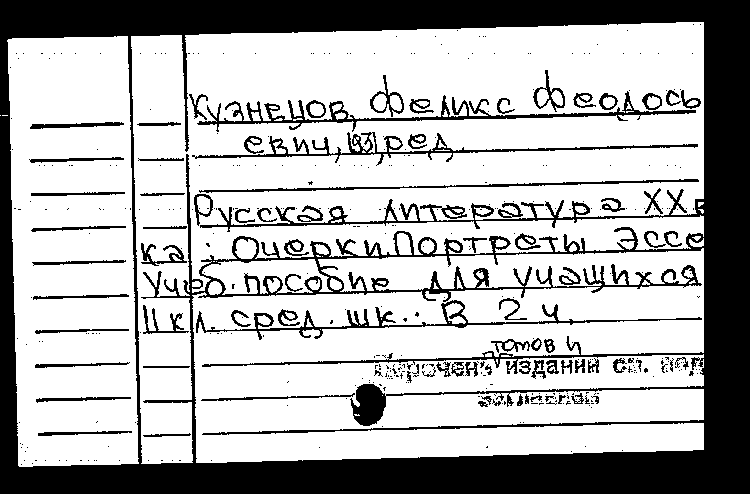 Кузнецов, Феликс Феодось
евич, 1931, ред.
Русская литература XX в
ка : Очерки. Портреты Эссе
Учеб. пособие для учащихся
11 кл. сред. шк.: В 2 ч.
томов и
Перечень изданий см. под
заглавием